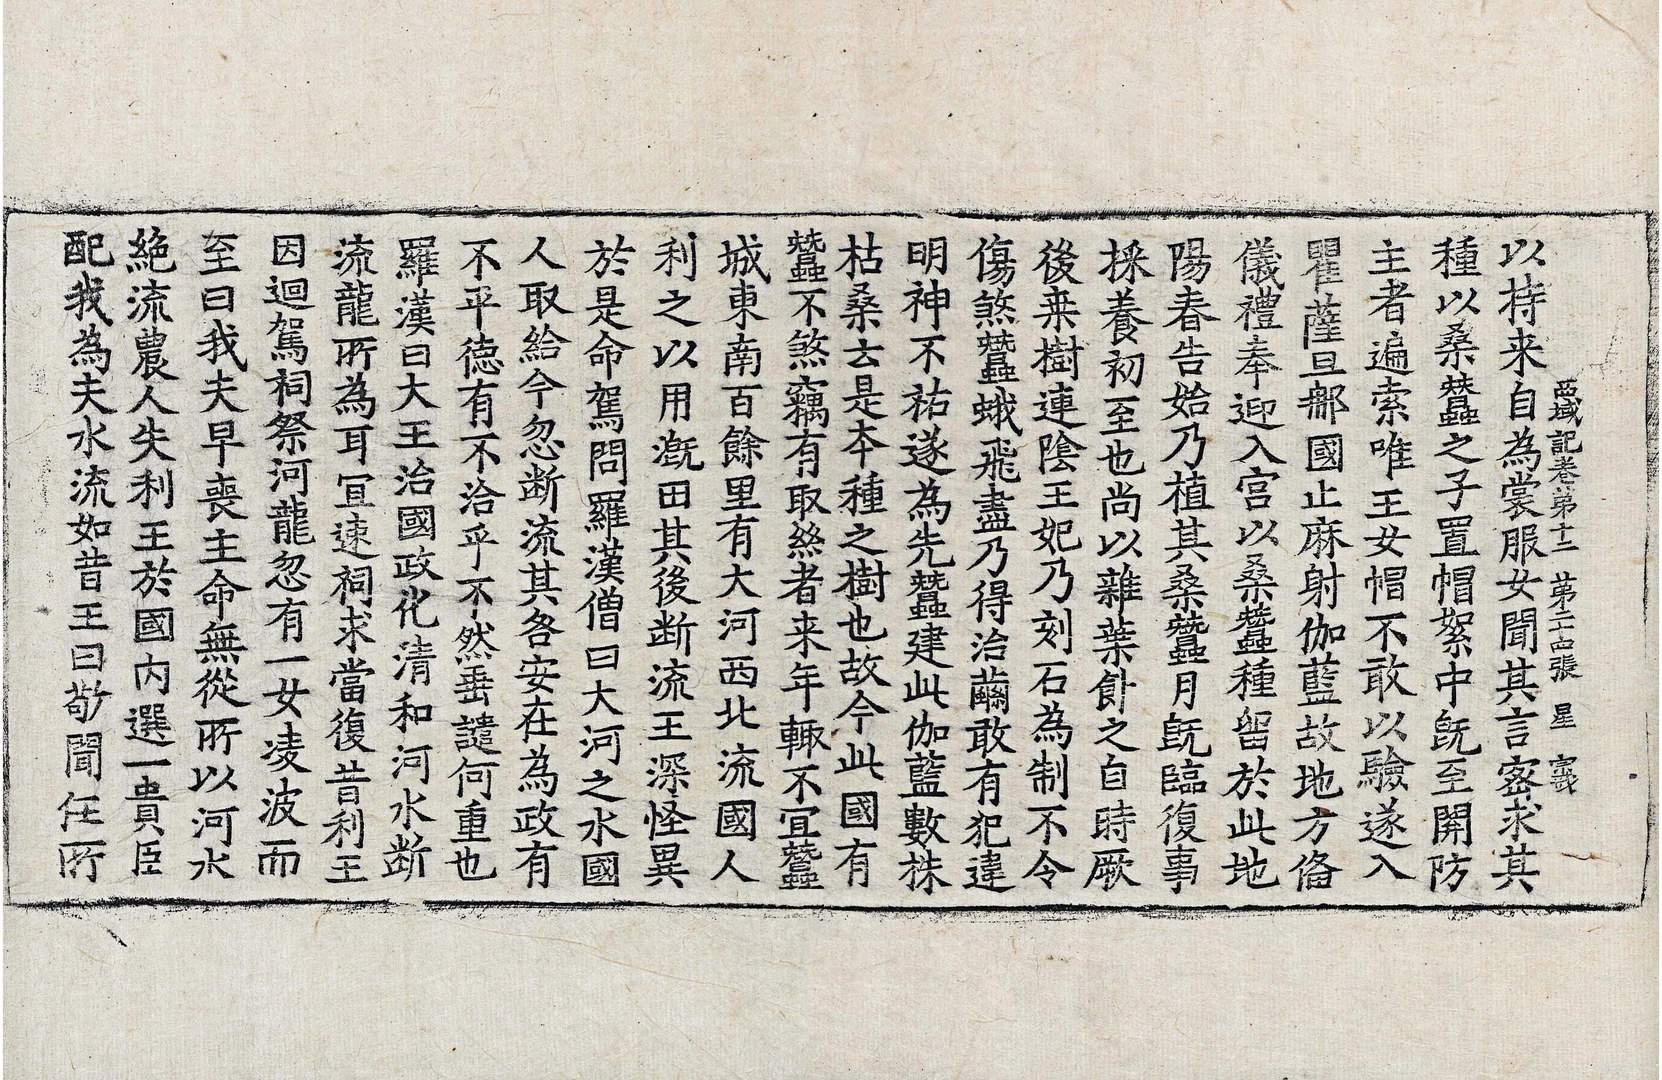 西域記卷第十二 第二十四張 星 字號
以持来自為裳服女聞其言密求其
種以桑蠶之子置帽絮中旣至關防
主者遍索唯王女帽不敢以驗遂入
瞿薩旦那國止麻射伽藍故地方俻
儀禮奉迎入宮以桑蠶種留於此地
陽春告始乃植其桑蠶月旣臨復事
採養初至也尚以雜葉飤之自時厥
後桒樹連陰王妃乃刻石為制不令
傷煞蠶蛾飛盡乃得治繭敢有犯違
明神不祐遂為先蠶建此伽藍數株
枯桑云是本種之樹也故今此國有
蠶不煞竊有取絲者来年輙不冝蠶
城東南百餘里有大河西北流國人
利之以用漑田其後断流王深怪異
於是命駕問羅漢僧曰大河之水國
人取給今忽断流其咎安在為政有
不平德有不洽乎不然垂譴何重也
羅漢曰大王治國政化清和河水断
流龍所為耳冝速祠求當復昔利王
因迴駕祠祭河龍忽有一女凌波而
至曰我夫早喪主命無從所以河水
絶流農人失利王於國内選一貴臣
配我為夫水流如昔王曰敬聞任所